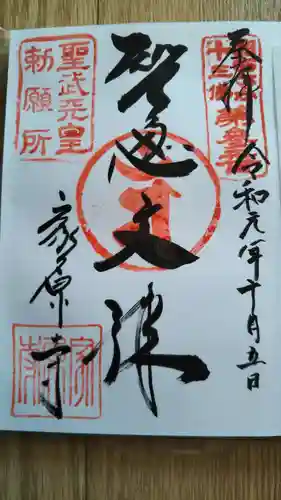 奉拝 令和元年十月五日
智恵文殊
家原寺
聖武天皇
勅願所